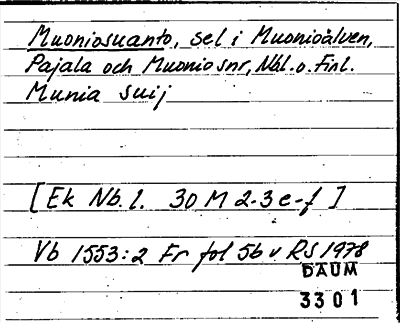 Muoniosuanto, sel i Muonioälven,
Pajala och Muonio snr, Nbl. o. Finl.
Munia suij
[Ek Nb. l. 30 M 2-3 e-f ]
Vb 1553:2 Fr fol 5b v RS 1978
DAUM
3301